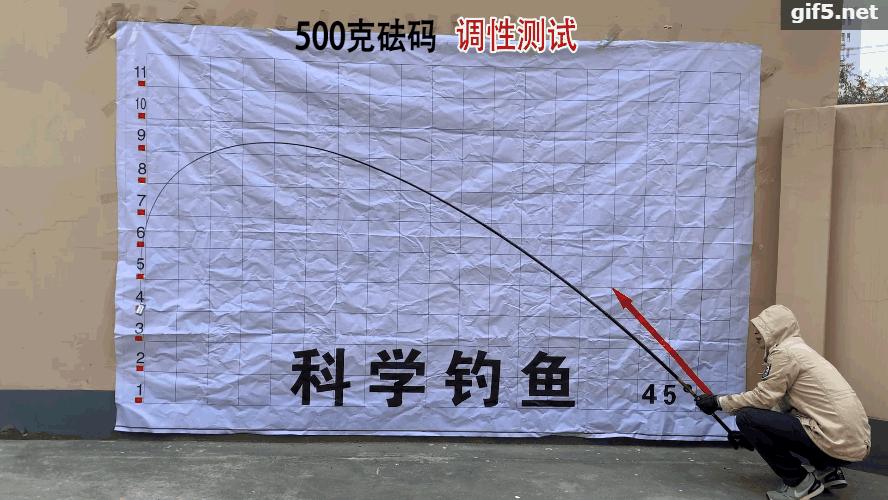 gif5.net
500克砝码 调性测试
11
10
9
8
7
6
5
4
3
2
1
科学钓鱼
45°